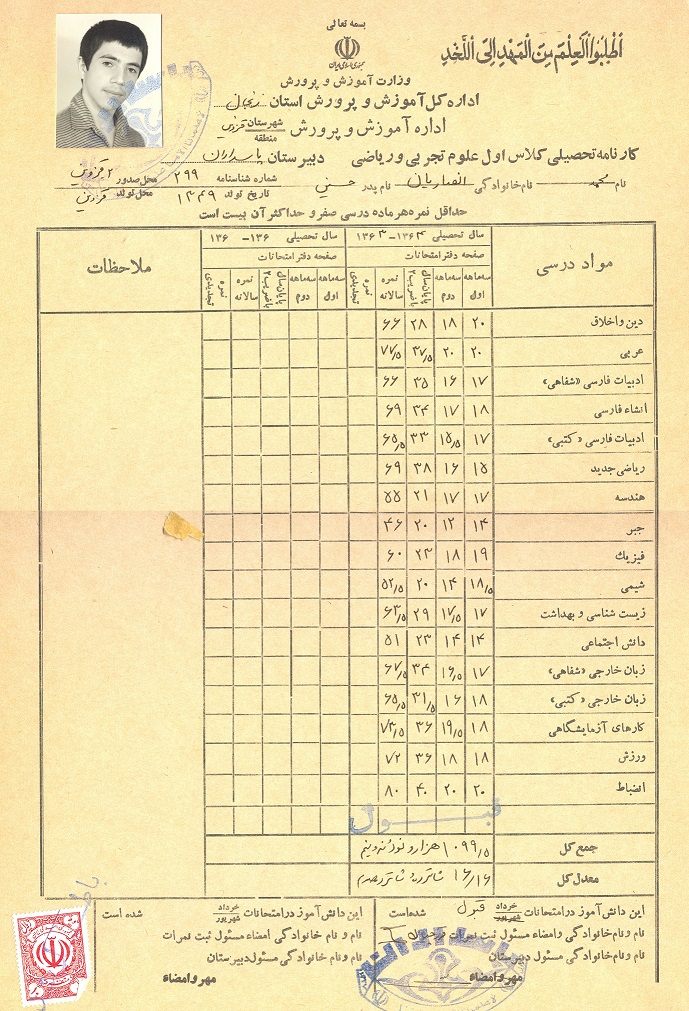 بسمه تعالی
اطلبوا العلم من المهد الی اللحد
جمهوری اسلامی ایران
وزارت آموزش و پرورش
اداره کل آموزش و پرورش استان زنجان
اداره آموزش و پرورش شهرستان منطقه قزوین
کارنامه تحصیلی کلاس اول علوم تجربی و ریاضی دبیرستان پاسداران
نام محمد نام خانوادگی انصاریان نام پدر حسین شماره شناسنامه ۲۹۹ محل صدور ۲ قزوین
تاریخ تولد ۱۳۴۹ محل تولد قزوین
حداقل نمره هر ماده درسی صفر و حداکثر آن بیست است
مواد درسی سال تحصیلی ۱۳۶۴ - ۱۳۶۳ سال تحصیلی ۱۳۶ - ۱۳۶ ملاحظات
صفحه دفتر امتحانات صفحه دفتر امتحانات
سه ماهه اول سه ماهه دوم پایان سال با ضریب ۲ نمره سالانه نمره تجدیدی سه ماهه اول سه ماهه دوم پایان سال با ضریب ۲ نمره سالانه نمره تجدیدی
دین و اخلاق ۲۰ ۱۸ ۲۸ ۶۶
عربی ۲۰ ۲۰ ۳۷/۵ ۷۷/۵
ادبیات فارسی «شفاهی» ۱۷ ۱۶ ۳۵ ۶۶
انشاء فارسی ۱۸ ۱۷ ۳۴ ۶۹
ادبیات فارسی «کتبی» ۱۷ ۱۵/۵ ۳۳ ۶۵/۵
ریاضی جدید ۱۵ ۱۶ ۳۸ ۶۹
هندسه ۱۷ ۱۷ ۲۱ ۵۵
جبر ۱۴ ۱۲ ۲۰ ۴۶
فیزیک ۱۹ ۱۸ ۲۳ ۶۰
شیمی ۱۸/۵ ۱۴ ۲۰ ۵۲/۵
زیست شناسی و بهداشت ۱۷ ۱۷/۵ ۲۹ ۶۳/۵
دانش اجتماعی ۱۴ ۱۴ ۲۳ ۵۱
زبان خارجی «شفاهی» ۱۷ ۱۶/۵ ۳۴ ۶۷/۵
زبان خارجی «کتبی» ۱۸ ۱۶ ۳۱/۵ ۶۵/۵
کارهای آزمایشگاهی ۱۸ ۱۹/۵ ۳۶ ۷۳/۵
ورزش ۱۸ ۱۸ ۳۶ ۷۲
انضباط ۲۰ ۲۰ ۴۰ ۸۰
قبول
جمع کل ۱۰۹۹/۵ هزار و نود و نه و نیم
معدل کل ۱۶/۱۶ شانزده و شانزده صدم
این دانش آموز در امتحانات خرداد شهریور قبول شده است این دانش آموز در امتحانات خرداد شهریور شده است
نام و نام خانوادگی و امضاء مسئول ثبت نمرات نام و نام خانوادگی امضاء مسئول ثبت نمرات
نام و نام خانوادگی مسئول دبیرستان نام و نام خانوادگی مسئول دبیرستان
مهر و امضاء مهر و امضاء